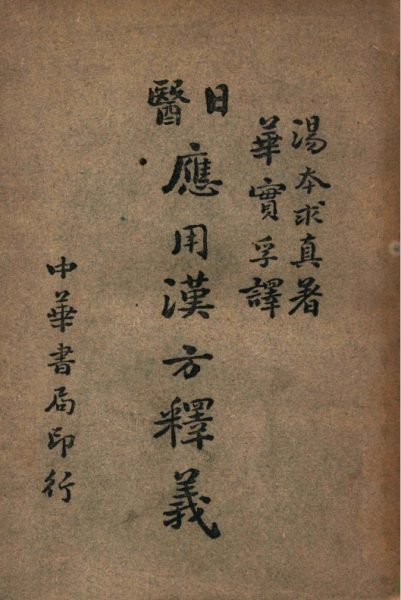 湯本求真著
華實孚譯
日醫
應用漢方釋義
中華書局印行